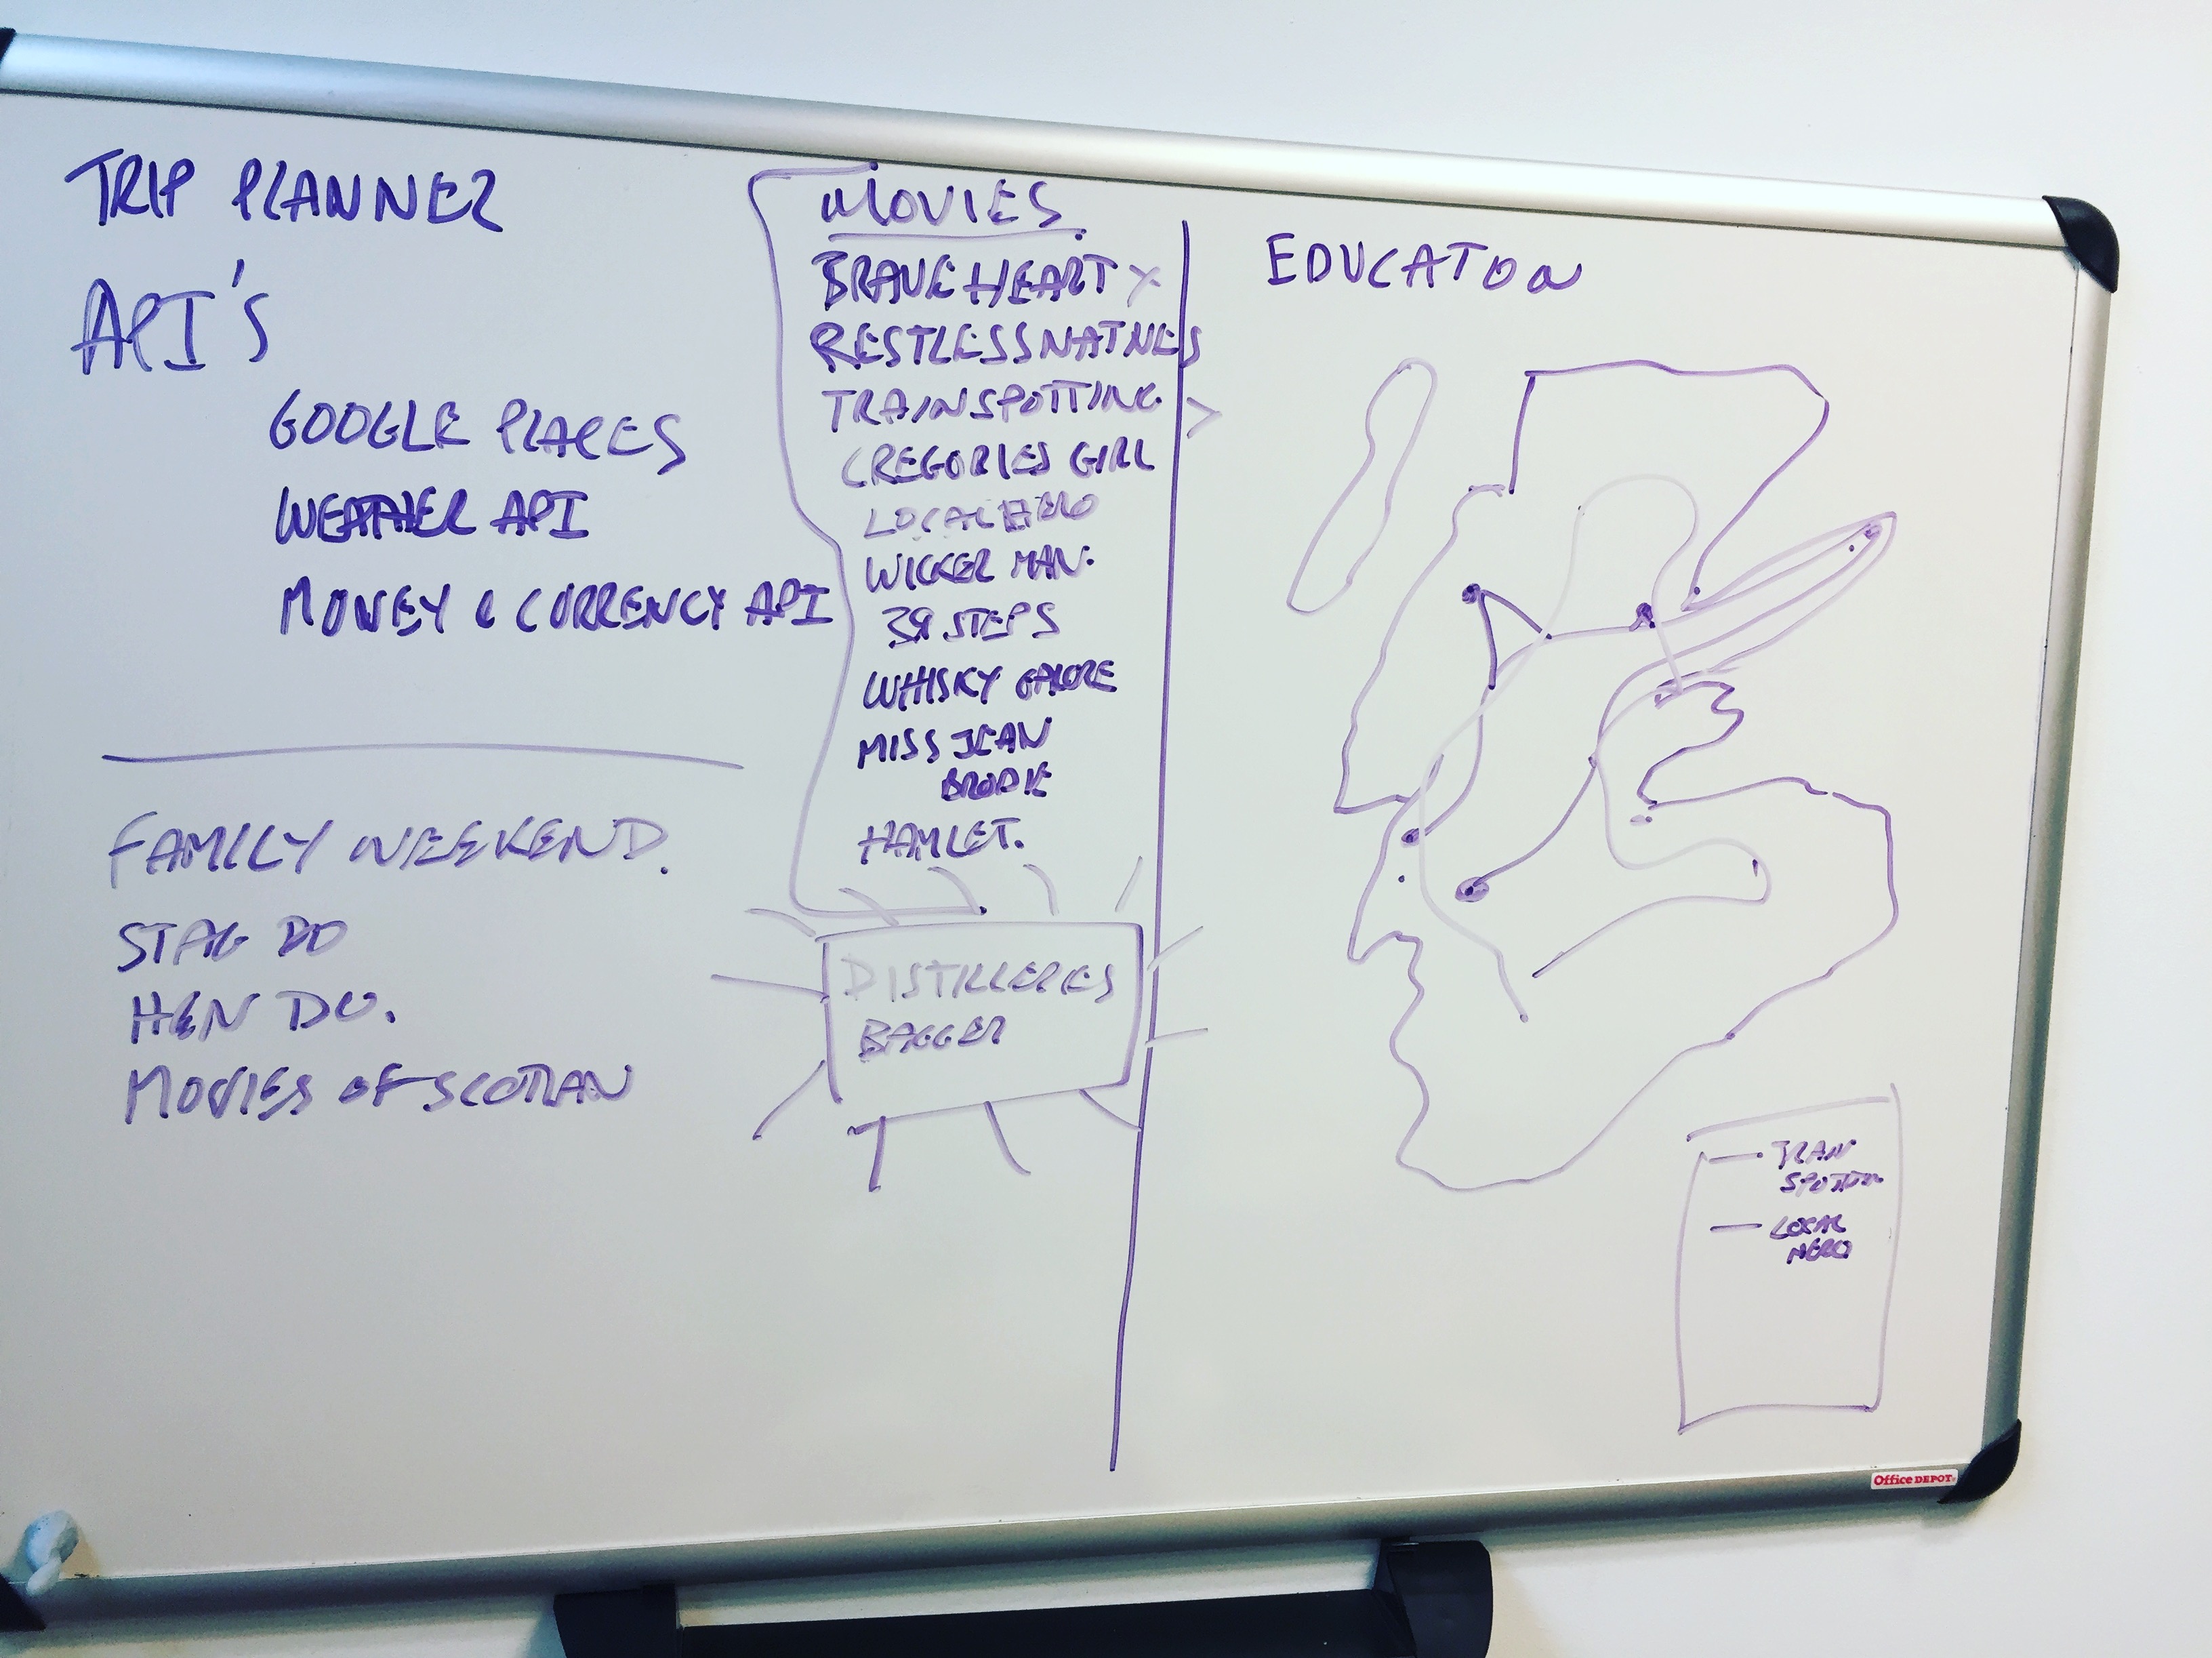 TRIP PLANNER
API'S
GOOGLE PLACES
WEATHER API
MONEY & CURRENCY API
FAMILY WEEKEND.
STAG DO
HEN DO.
MOVIES OF SCOTLAN
MOVIES
BRAVEHEART X
RESTLESS NATIVES
TRAINSPOTTING >
GREGORIES GIRL
LOCAL HERO
WICKER MAN.
39 STEPS
WHISKY GALORE
MISS JEAN
BRODIE
HAMLET.
DISTILLERIES
BAGGER
EDUCATON
TRAIN
SPOTTIN
LOCAL
HERO
Office DEPOT